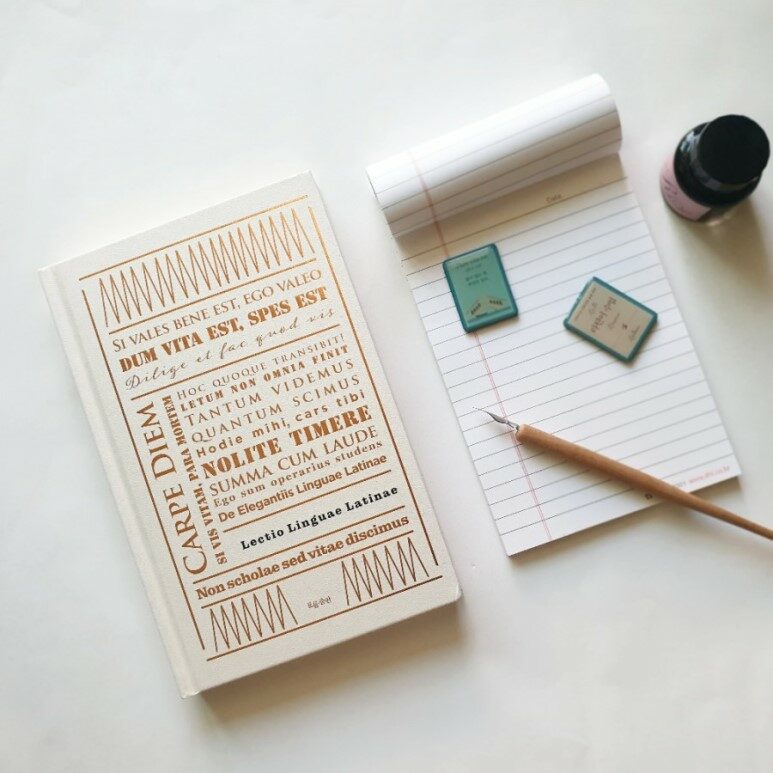 SI VALES BENE EST, EGO VALEO
DUM VITA EST, SPES EST
Dilige et fac quod vis
CARPE DIEM
SI VIS VITAM, PARA MORTEM
HOC QUOQUE TRANSIBIT!
LETUM NON OMNIA FINIT
TANTUM VIDEMUS
QUANTUM SCIMUS
Hodie mihi, cars tibi
NOLITE TIMERE
SUMMA CUM LAUDE
Ego sum operarius studens
De Elegantiis Linguae Latinae
Lectio Linguae Latinae
Non scholae sed vitae discimus
흐름출판
Date